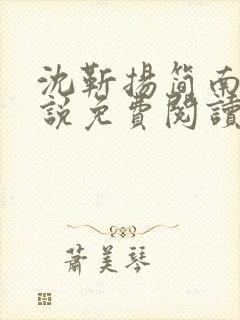 沈靳揚簡南
說免費閱讀
蕭美琴